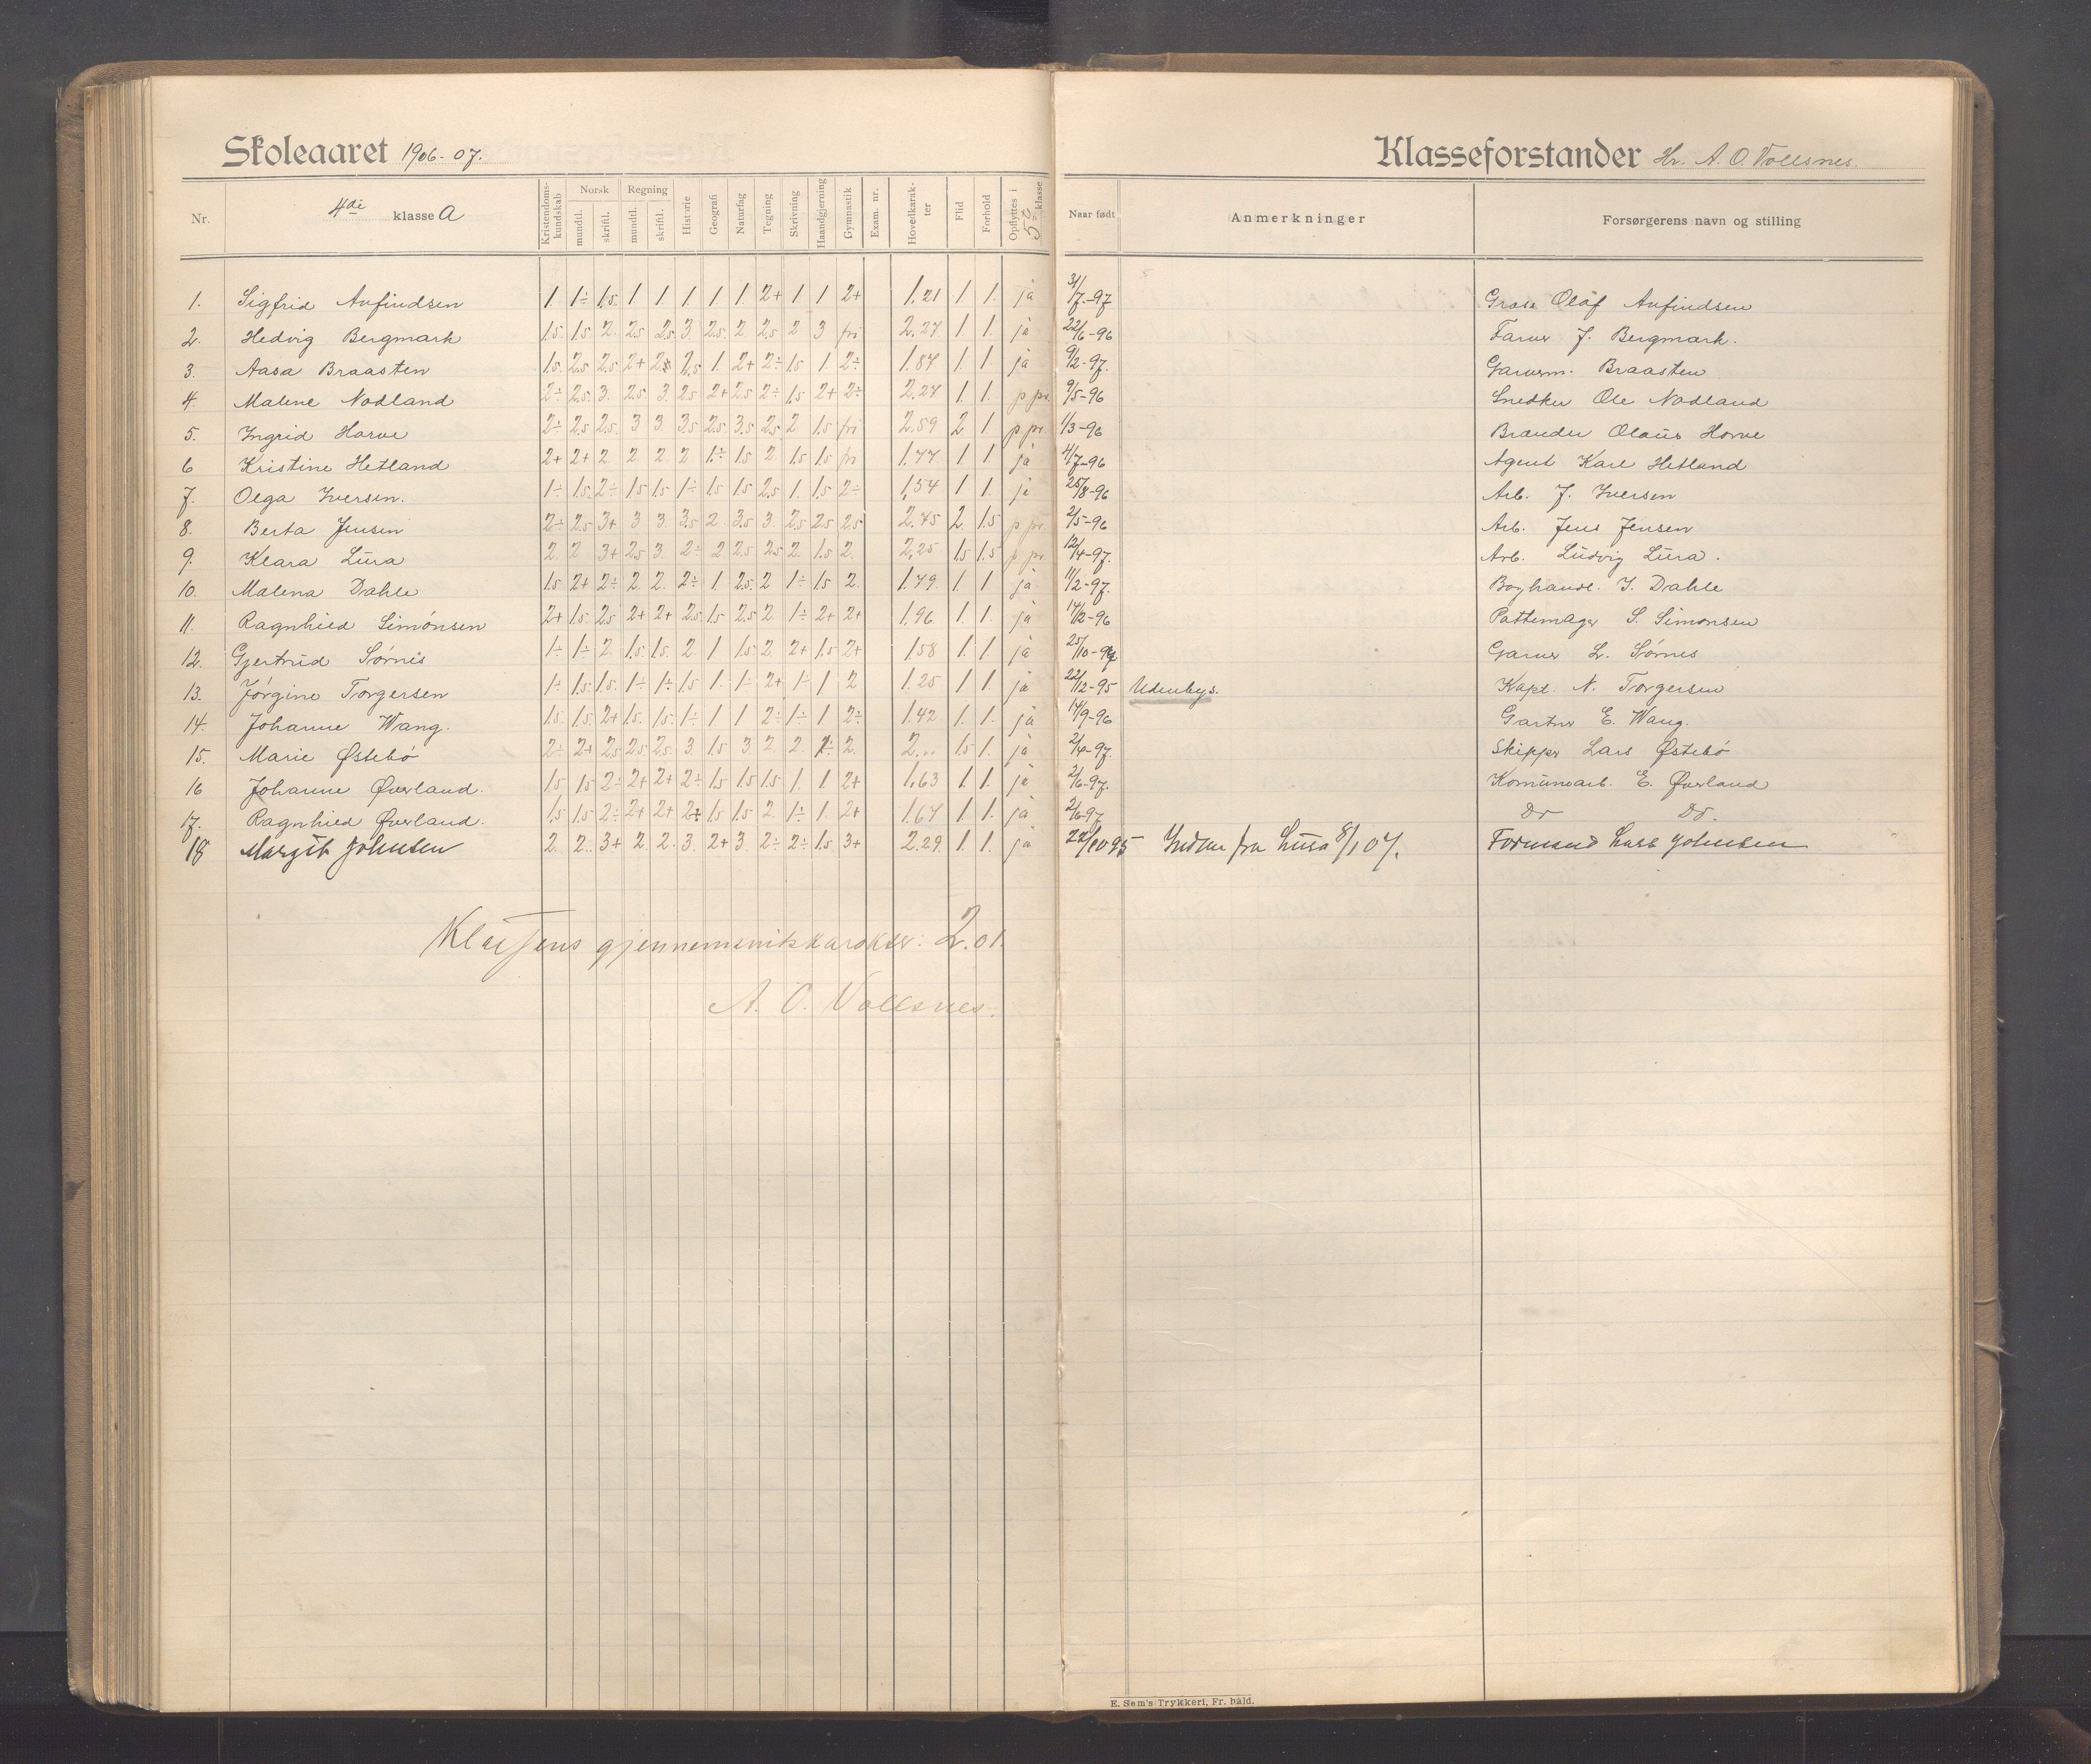 Skoleaaret 1906-07.
Klasseforstander Hr. A. O. Vollsnes.
Nr. 4de klasse A Kristendomskundskab Norsk mundtl. skriftl. Regning mundtl. skriftl. Historie Geografi Naturfag Tegning Skrivning Haandgjerning Gymnastik Exam. nr. Hovedkarakter Flid Forhold Opflyttes i 5te klasse Naar født Anmerkninger Forsørgerens navn og stilling
1. Sigfrid Anfindsen 1 1÷ 1.5 1 1 1 1 1 2+ 1 1 2+ 1.21 1 1 ja 31/7-97 Olaf Anfindsen
2. Hedvig Bergmark 1.5 1.5 2 2.5 2.5 3 2.5 2 2.5 2 3 fri 2.27 1 1 ja 22/6-96 Farver J. Bergmark.
3. Aasa Braasten 1.5 2.5 2.5 2+ 2.5 1.5 1 2+ 2÷ 1.5 1 2÷ 1.87 1 1 ja 9/2-97. Garverm. Braasten
4. Malene Nodland 2÷ 2.5 3 2.5 3 2.5 2+ 2.5 2÷ 1.5 2+ 2÷ 2.27 1 1 p pr. 9/5-96 Snedker Ole Nodland
5. Ingrid Horve 2÷ 2.5 2.5 3 3 3.5 2.5 3.5 2.5 2 1.5 fri 2.59 2 1 p pr. 1/3-96 Brænder Olaus Horve
6 Kristine Hetland 2+ 2+ 2 2 2 2 1÷ 1.5 2 1.5 1.5 fri 1.77 1 1 ja 4/7-96 Agent Karl Hetland
7. Olga Iversen. 1÷ 1.5 2÷ 1.5 1.5 1÷ 1.5 1.5 2.5 1 1.5 2÷ 1.54 1 1 ja 25/8-96 Arb. J. Iversen
8. Berta Jensen 2÷ 2.5 3+ 3 3 3.5 2 3.5 3 2.5 2.5 2.5 2.75 2 1.5 p pr. 2/5-96 Arb. Jens Jensen
9. Klara Lura 2 2 3+ 2.5 3 2÷ 2 2.5 2.5 2 1.5 2 2.25 1.5 1.5 p pr. 12/4-97. Arb. Ludvig Lura.
10. Malena Dahle 1.5 2+ 2÷ 2 2 2÷ 1 2.5 2 1÷ 1.5 2 1.79 1 1 ja 11/2-97. Boghandl. I. Dahle
11. Ragnhild Simonsen 2+ 1.5 2.5 2+ 2+ 2.5 1.5 2.5 2 1÷ 2+ 2+ 1.96 1 1 ja 14/12-96 Pottemager S. Simonsen
12. Gjertrud Sørnes 1÷ 1÷ 2 1.5 1.5 2 1 1.5 2 2+ 1.5 2+ 1.58 1 1 ja 25/10-96 Garver L. Sørnes
13. Jørgine Torgersen 1÷ 1.5 1.5 1÷ 1÷ 1.5 1 1÷ 2+ 1÷ 1 2 1.25 1 1 ja 22/12-95 Udenbys. Kapt. N. Torgersen
14. Johanne Wang. 1.5 1.5 2+ 1.5 1.5 1÷ 1 1 2÷ 1÷ 1 2÷ 1.42 1 1 ja 14/9-96 Gartner E. Wang.
15. Marie Østebø 2÷ 2+ 2.5 2.5 2.5 3 1.5 3 2 2 1÷ 2 2... 1.5 1 ja 2/4-97. Skipper Lars Østebø
16 Johanne Øverland. 1.5 1.5 2÷ 2+ 2+ 2÷ 1.5 1.5 1.5 1 1 2+ 1.63 1 1 ja 2/6-97. Komunearb. E. Øverland
17. Ragnhild Øverland. 1.5 1.5 2÷ 2+ 2+ 2÷ 1.5 1.5 2 1÷ 1 2+ 1.67 1 1 ja 2/6-97 Do Do.
18 Margit Johnsen 2 2 3+ 2 2 3 2+ 3 2÷ 2÷ 1.5 3+ 2.29 1 1 ja 22/10 95 Indm fra Lura 8/1 07. Formand Lars Johnsen
Klassens gjennemsnitskarakter: 2.01.
A. O. Vollsnes.
E. Sem's Trykkeri, Fr. hald.